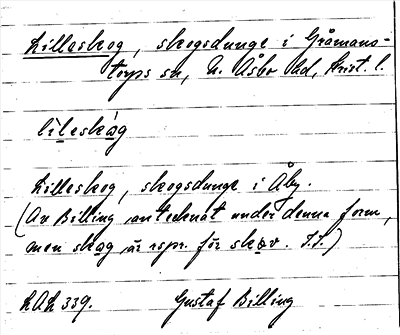 Lilleskog, skogsdunge i Gråmans-
torps sn, N. Åsbo hd, Krist. l.
lileskåg
Lilleskog, skogsdunge i Åby.
(Av Billing antecknat under denna form,
men skog är rspr. för skov. I.I.)
LAL 339. Gustaf Billing